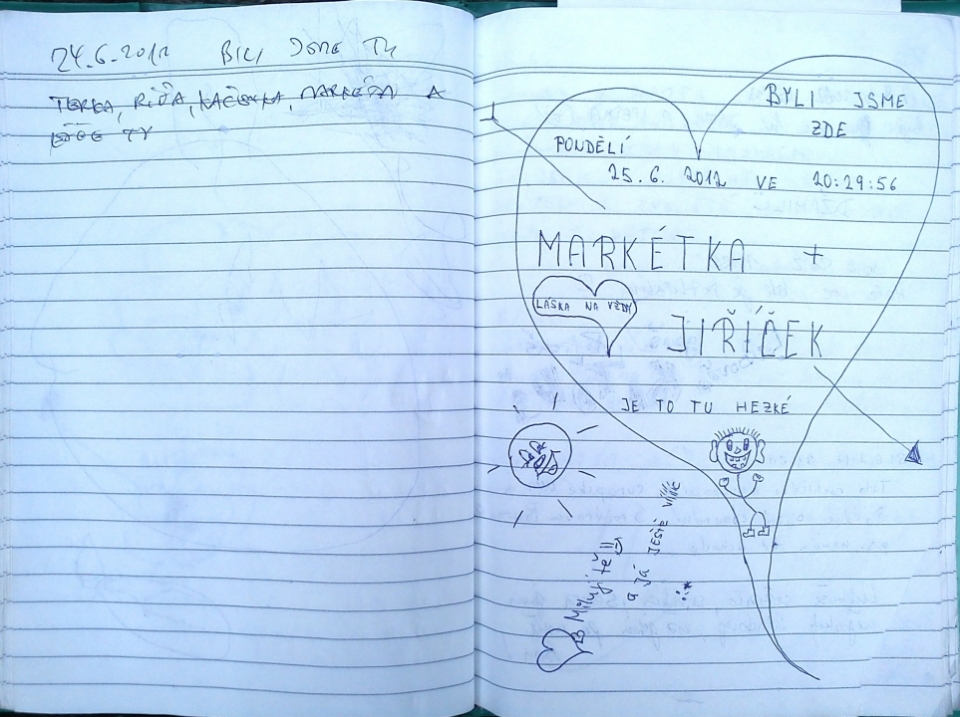 24.6.2012 BILI JSME TU
TERKA, RIĎA, KAČENKA, MARKÉTA A
BYLI JSME
ZDE
PONDĚLÍ
25.6. 2012 VE 20:29:56
MARKÉTKA +
LÁSKA NA VŽDY
JIŘÍČEK
JE TO TU HEZKÉ
Miluji tě !!
a JÁ JEŠTĚ VÍÍÍC